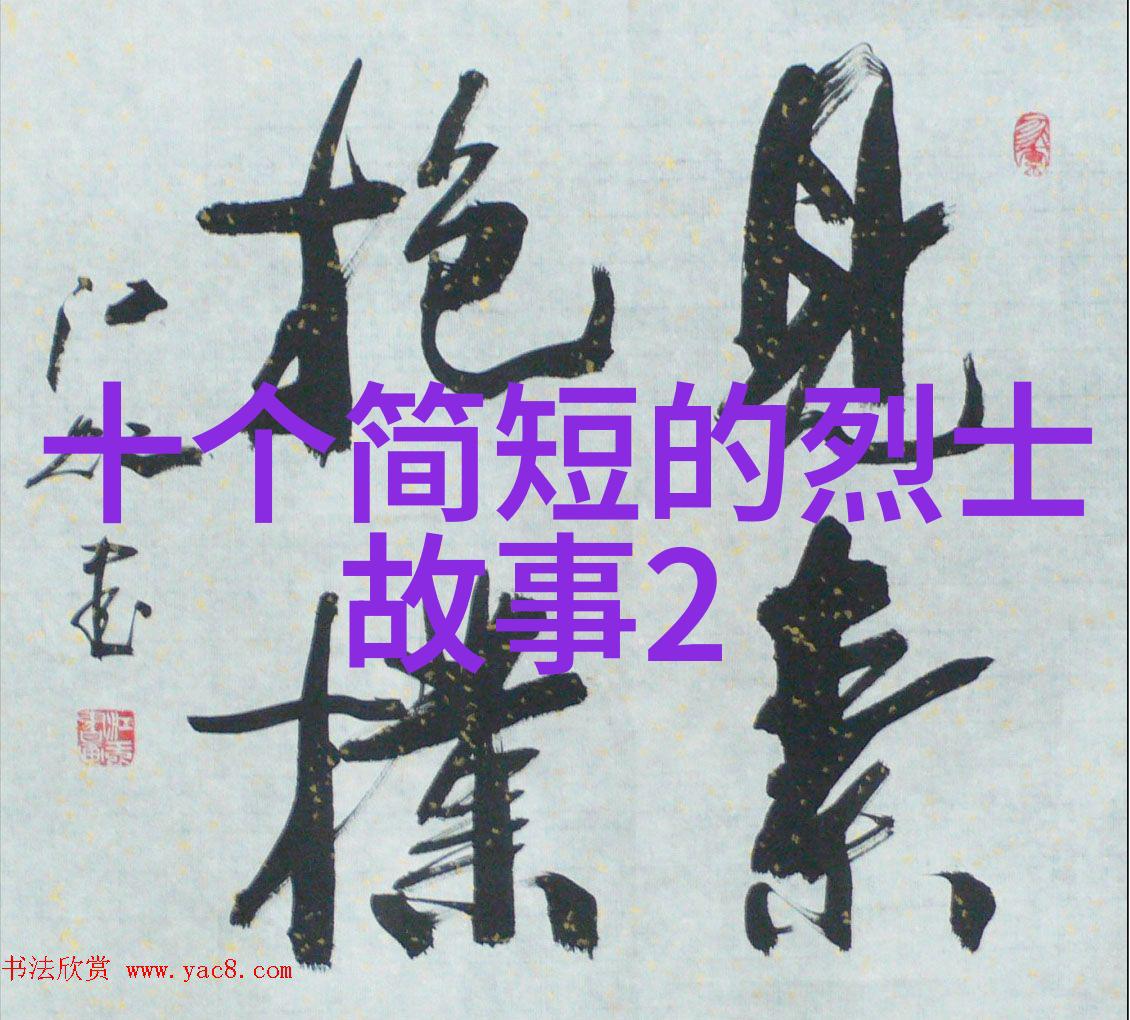 見素
抱樸
江平書
十个简短的烈士
故事2
书法欣赏 www.yac8.com